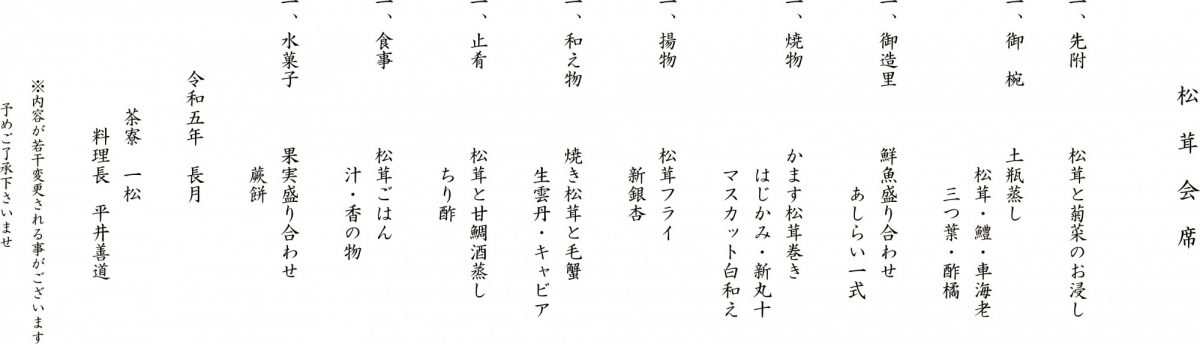 松茸会席
一、先附　松茸と菊菜のお浸し
一、御椀　土瓶蒸し
松茸・鱧・車海老
三つ葉・酢橘
一、御造里　鮮魚盛り合わせ
あしらい一式
一、焼物　かます松茸巻き
はじかみ・新丸十
マスカット白和え
一、揚物　松茸フライ
新銀杏
一、和え物　焼き松茸と毛蟹
生雲丹・キャビア
一、止肴　松茸と甘鯛酒蒸し
ちり酢
一、食事　松茸ごはん
汁・香の物
一、水菓子　果実盛り合わせ
蕨餅
令和五年　長月
茶寮　一松
料理長　平井善道
※内容が若干変更される事がございます
予めご了承下さいませ